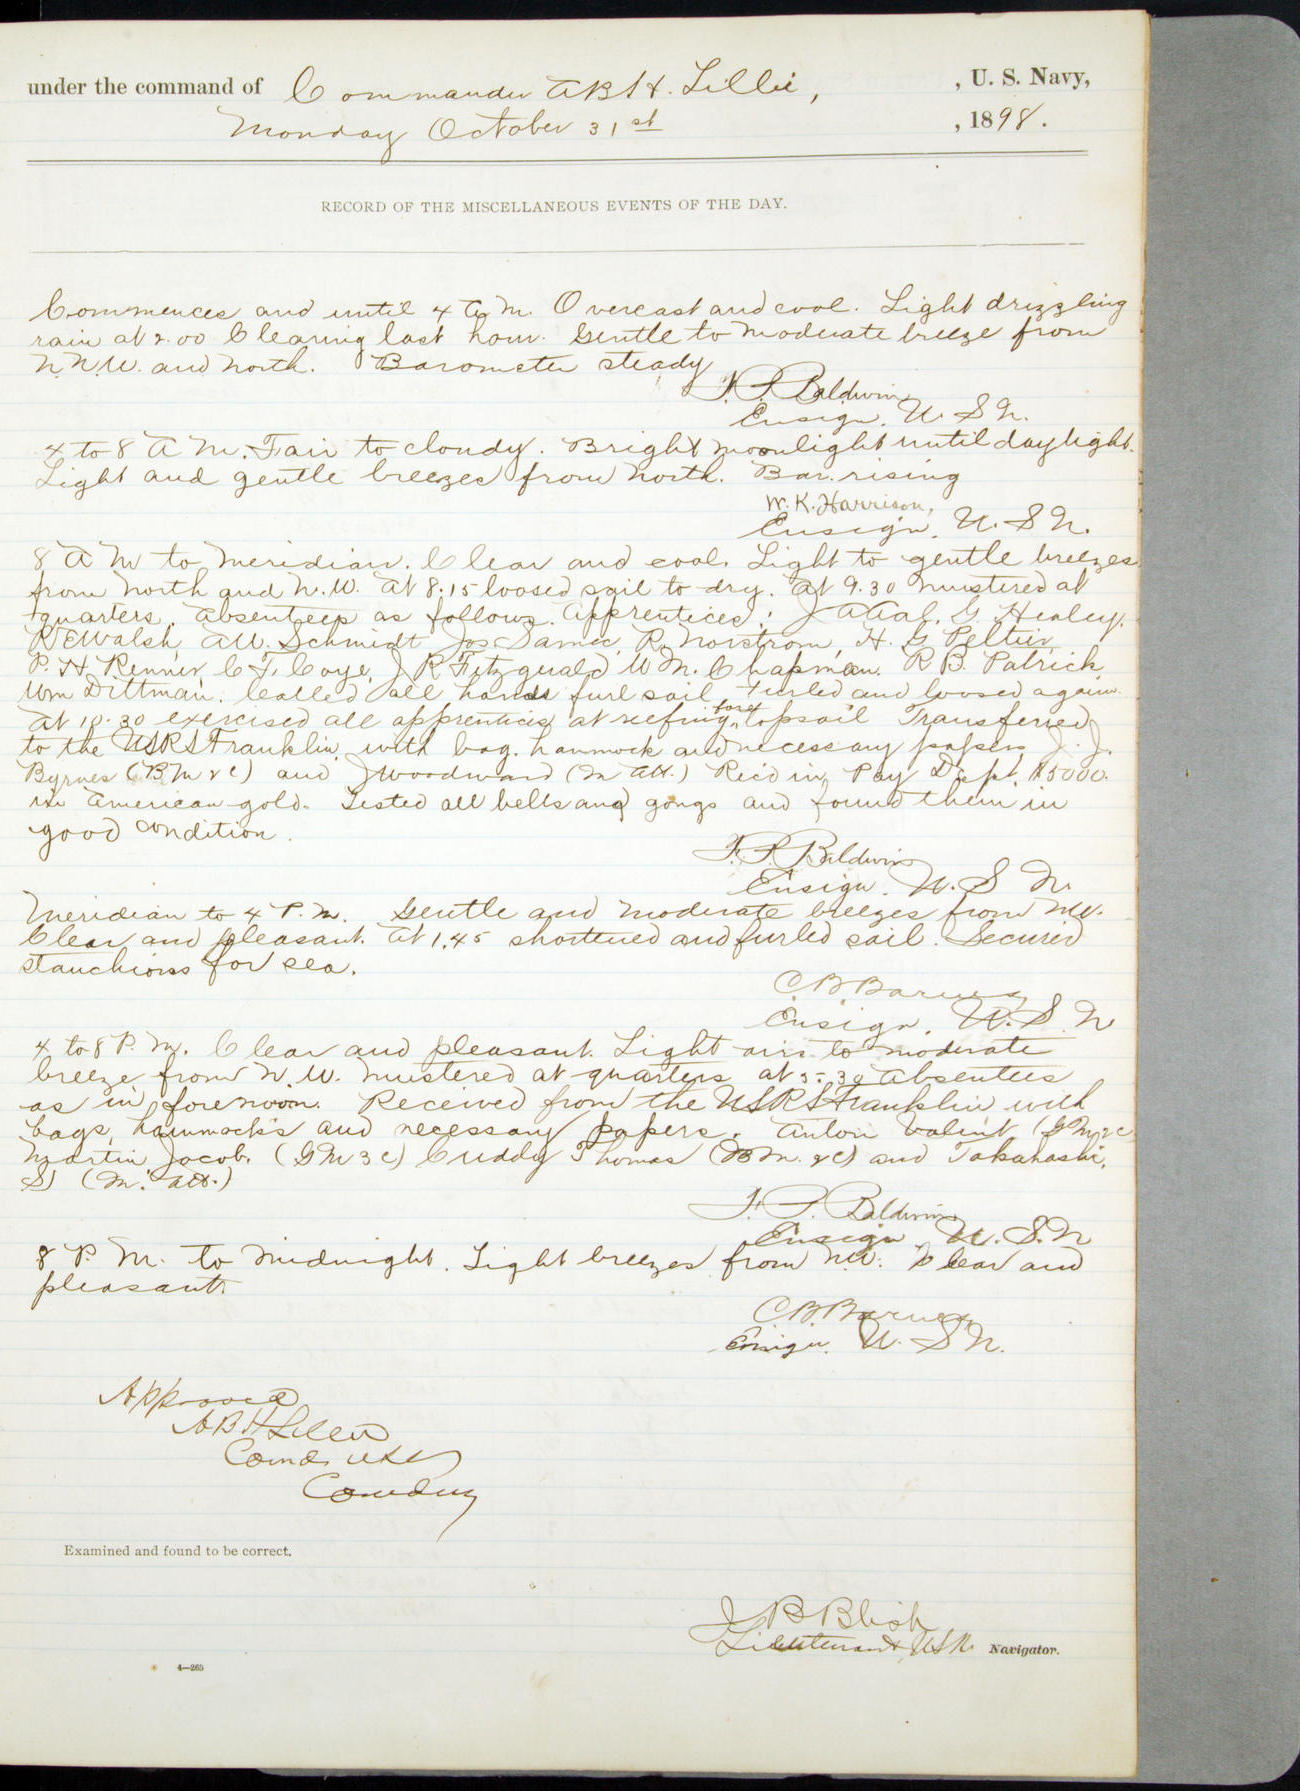 under the command of Commander A B H. Lillie, , U. S. Navy,
Monday October 31st , 1898.
RECORD OF THE MISCELLANEOUS EVENTS OF THE DAY.
Commences and until 4 A.M. Overcast and cool. Light drizzling
rain at 2.00 Clearing last hour. Gentle to moderate breeze from
N.N.W. and North. Barometer steady
Baldwin
Ensign. U. S N.
4 to 8 A M. Fair to cloudy. Bright moonlight until daylight.
Light and gentle breezes from North. Bar. rising
W. K. Harrison,
Ensign, U. S N.
8 A M to Meridian. Clear and cool. Light to gentle breezes
from North and N.W. At 8.15 loosed sail to dry. At 9.30 mustered at
quarters. Absentees as follows. Apprentices: G. Healey.
Walsh, A W. Schmidt Jos R. Norstrom, H. G Peltier,
P. H. Renner, C F. Coye, J R Fitzgerald W M. Chapman. R B. Patrick
Wm Dittman. Called all hands furl sail, furled and loosed again.
At 10.30 exercised all apprentices at reefing fore topsail Transferred
to the USRS Franklin, with bag. hammock and necessary papers J. J.
Byrnes (B M 2 c) and J Woodward (M Att.) Rec'd in Pay Dept. $5000.
in American gold. Tested all bells and gongs and found them in
good condition.
Baldwin
Ensign. U. S N.
Meridian to 4 P. M. Gentle and moderate breezes from NW.
Clear and pleasant. At 1.45 shortened and furled sail. Secured
stanchions for sea.
C. B Barnes
Ensign. U. S. N
4 to 8 P. M. Clear and pleasant. Light airs to moderate
breeze from N.W. Mustered at quarters at 5.30 Absentees
as in forenoon. Received from the USRS Franklin with
bags, hammocks and necessary papers. Anton Valint (G M 2 c
Martin Jacob. (G M 3 c) Cuddy Thomas (B M. 2 c) and Takahashi,
S (M. Att.)
Baldwin
Ensign U. S. N
8 P. M. to Midnight. Light breezes from NW. Clear and
pleasant.
C B. Barnes
Ensign. U. S N.
Approved
A B H Lillie
Comdr USN
Comdng
Examined and found to be correct.
J B Blish
Lieutenant, USN. Navigator.
4—265